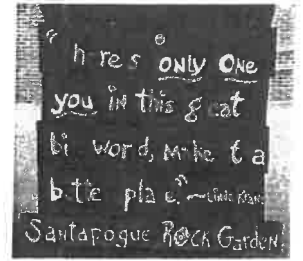 "here's only one
you in this great
bi word, make t a
bette place"~
Santapogue Rock Garden!